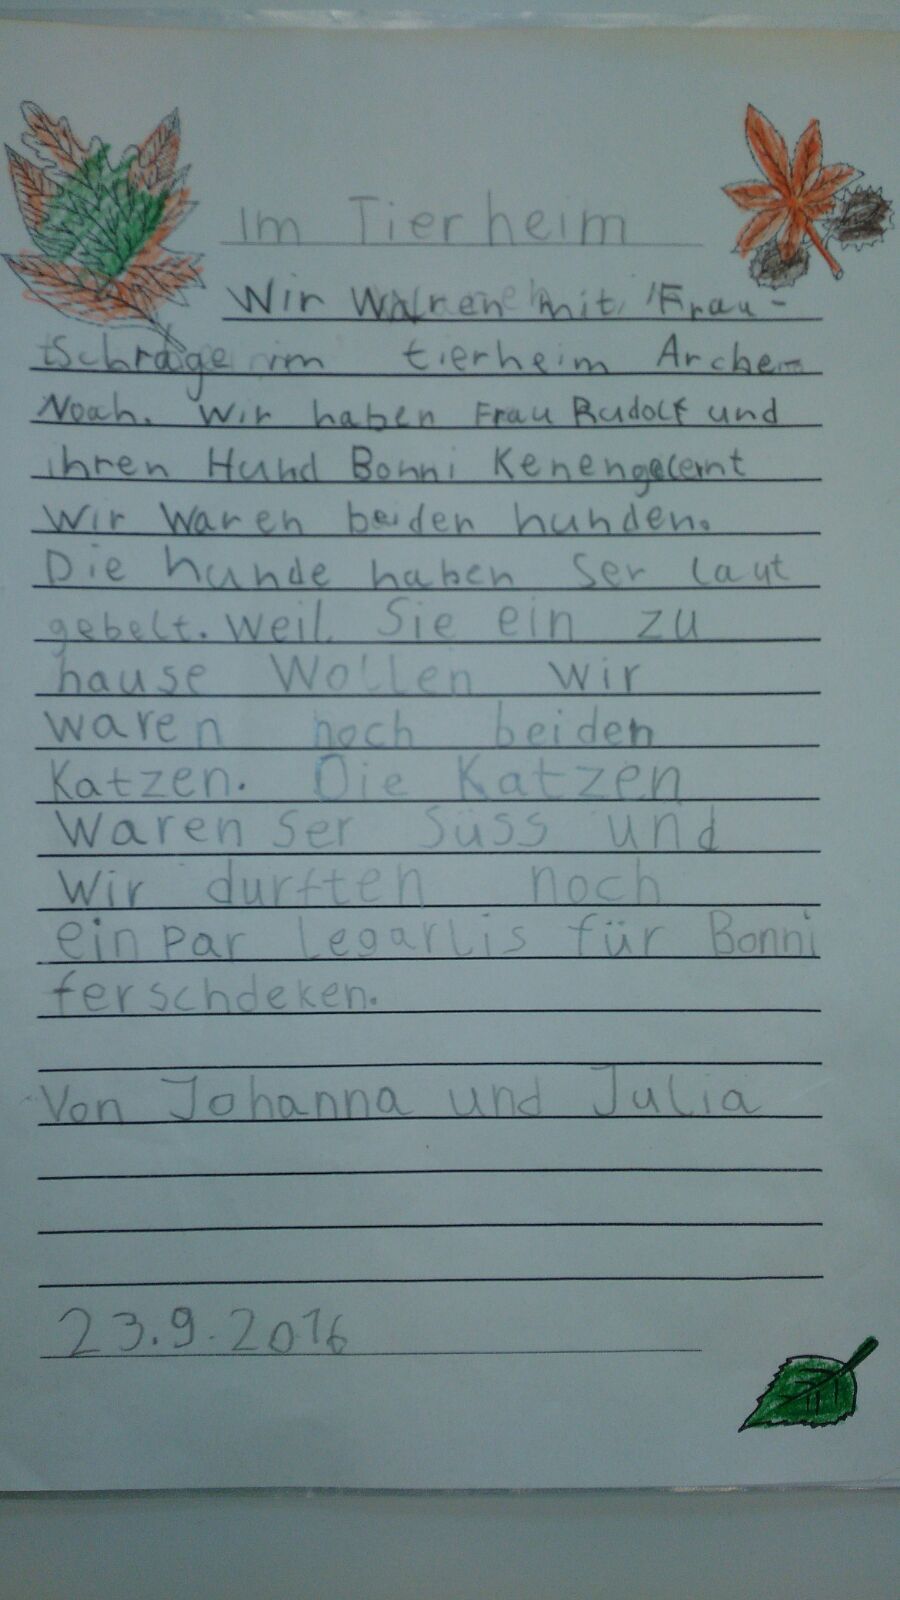 Im Tierheim
Wir Waren mit Frau-
tSchräge im tierheim Arche
Noah. Wir haben Frau Rudolf und
ihren Hund Bonni Kenengelernt
Wir Waren beiden hunden.
Die hunde haben Ser laut
gebelt. Weil Sie ein zu
hause Wollen Wir
waren noch beiden
Katzen. Die Katzen
Waren Ser Süss und
Wir durften noch
ein Par Legarlis für Bonni
ferschdeken.
Von Johanna und Julia
23.9.2016